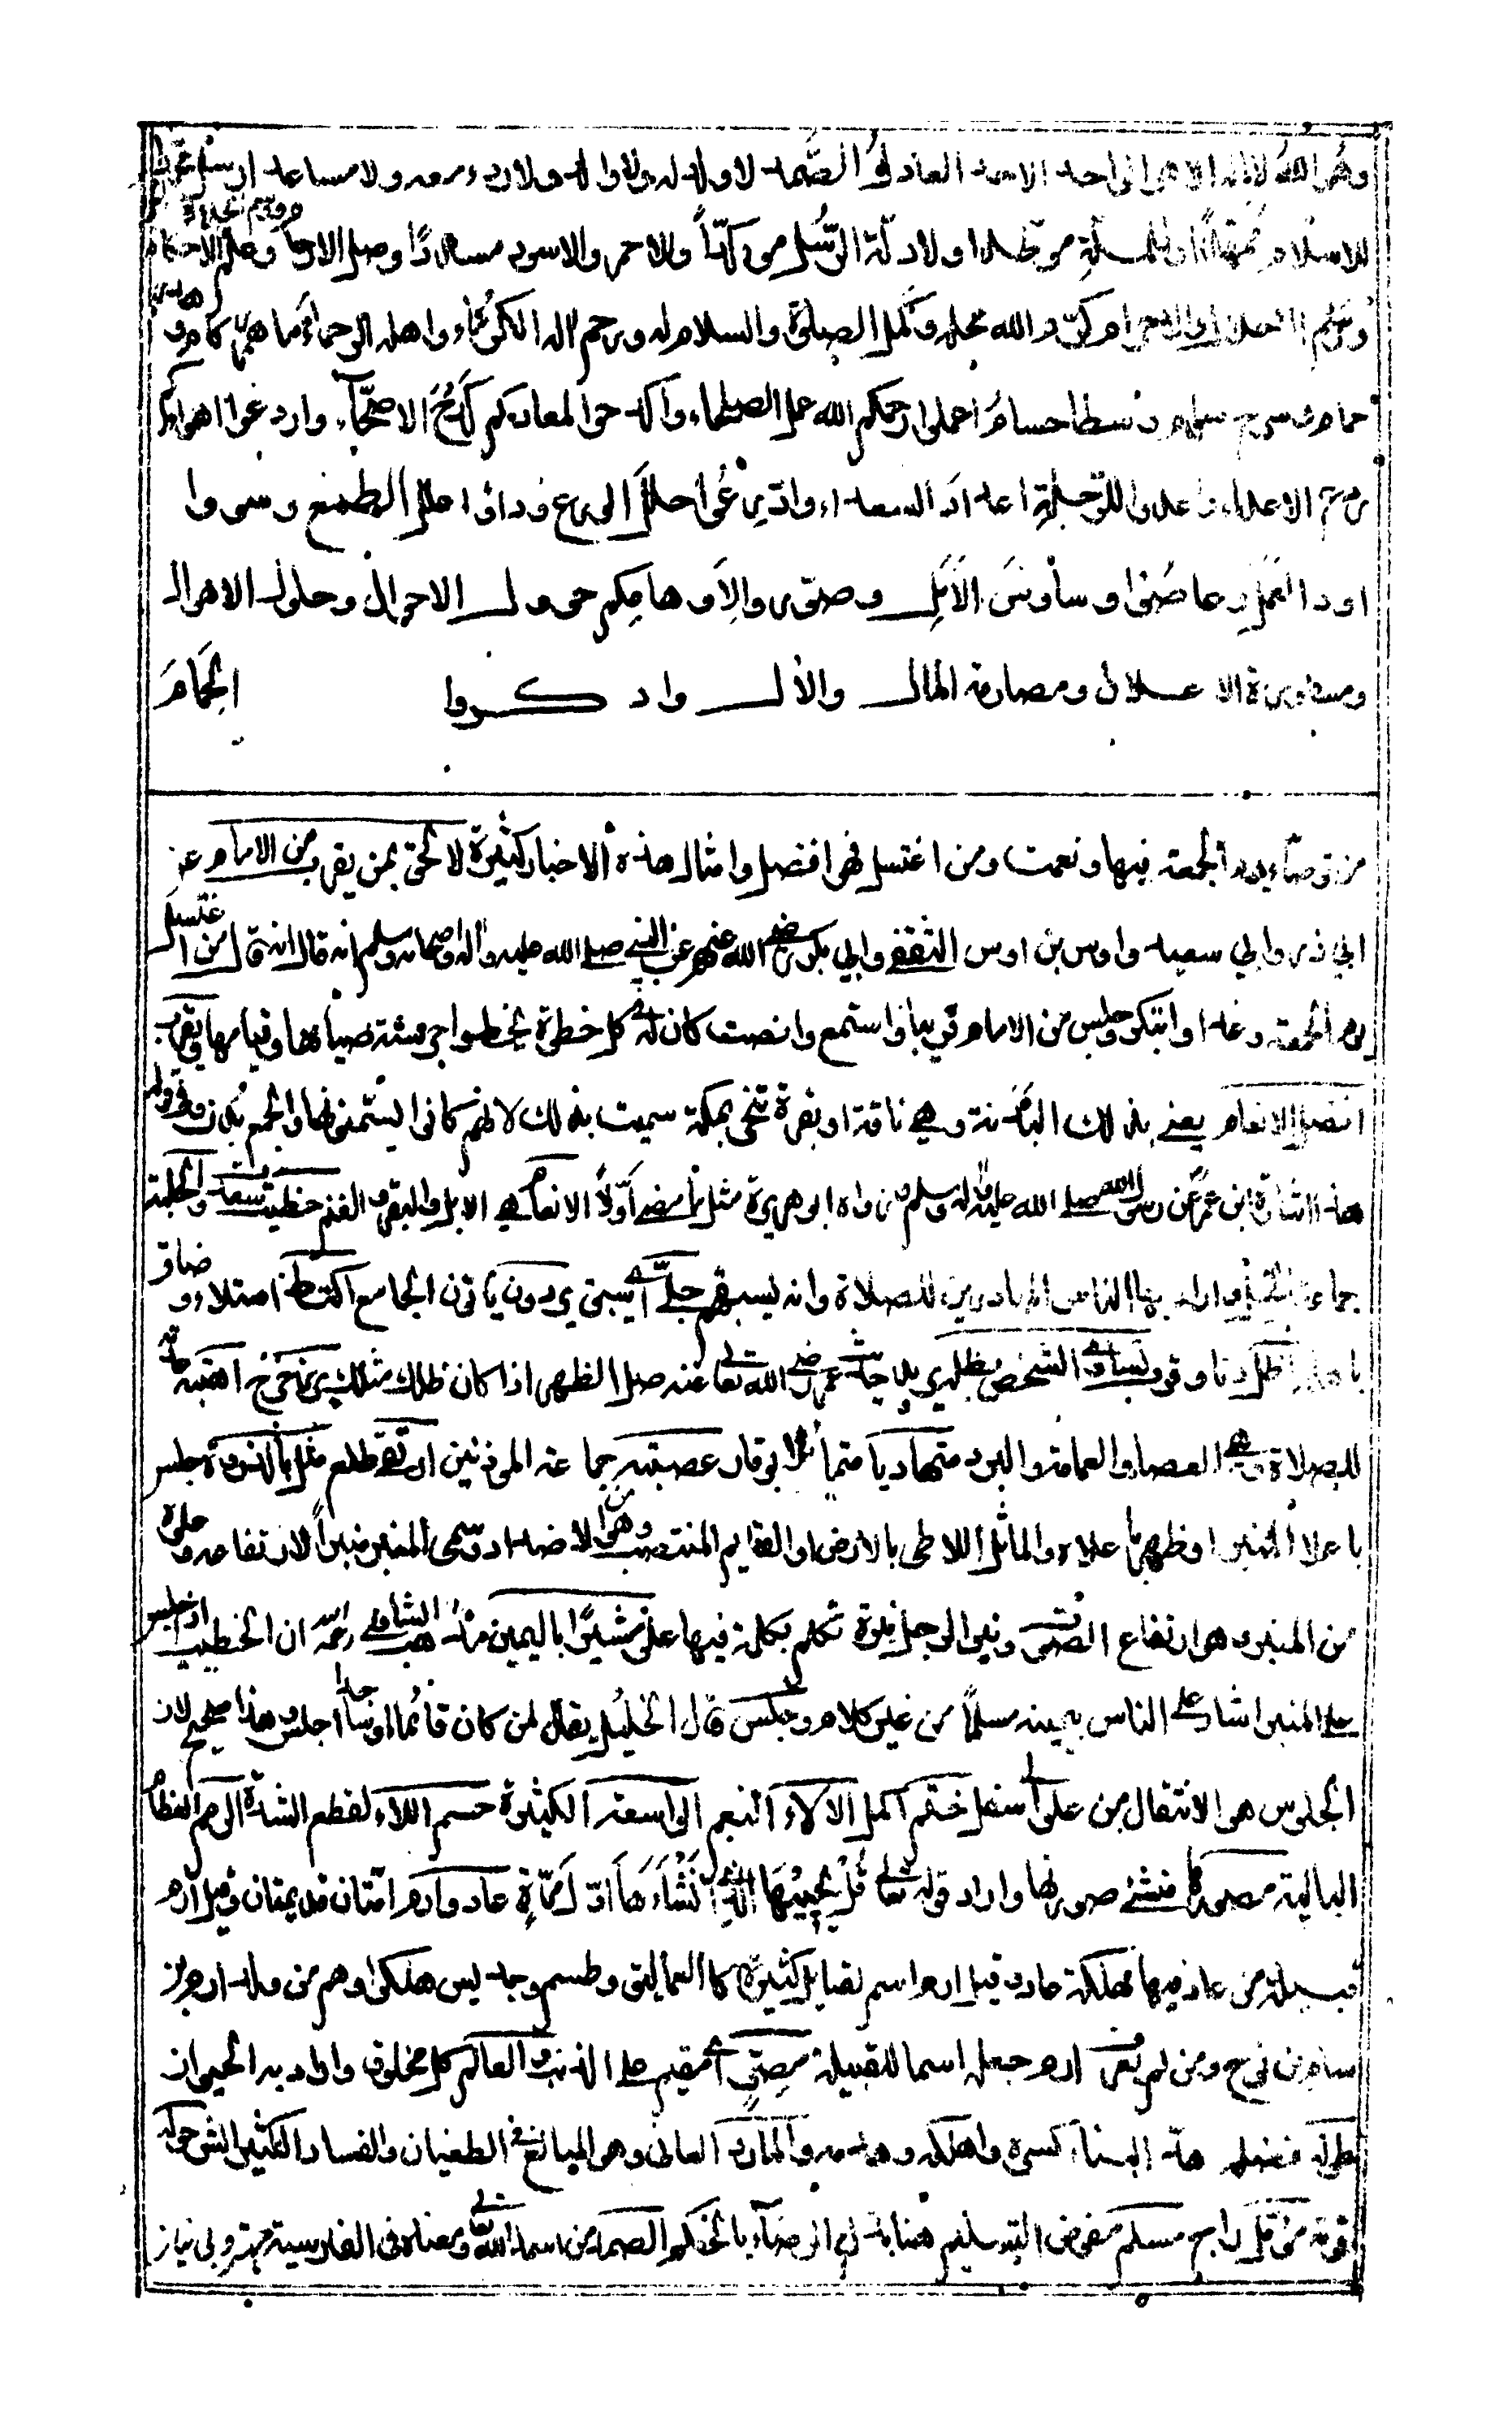 وهو الله لا اله الا هو الواحد الاحد العادل الصمد لا ولد له ولا والد ولا ردء معه ولا مساعد ارسل محمدا
للاسلام ممهدا وللملة موطدا ولادلة الرسل موكدا وللاحمر والاسود مسددا وصل الارحام وعلم الاحكام
ووسم الحلال والحرام كرم الله محله وكمل الصلوة والسلام له ورحم اله الكرماء واهله الرحماء ما همر ركام وهدر
حمام وسرح سوام وسطا حسام اعملوا رحمكم الله عمل الصلحاء واكدحوا لمعادكم كدح الاصحاء واردعوا اهواءكم
ردع الاعداء واعدوا للرحلة اعداد السعداء وادرعوا حلل الورع وداووا علل الطمع وسووا
اود العمل وعاصوا وساوس الامل وصوروا لاوهامكم حوول الاحوال وحلول الاهوال
ومساورة الاعلال ومصارمة المال والال وادكروا الحمام
من توضاء يوم الجمعة فبها ونعمت ومن اغتسل فهو افضل وامثال هذه الاخبار كثيرة لا لحق بمن يقرب من الامام عن
ابي ذر وابي سعيد واوس بن اوس الثقفي وابي بكر رضي الله عنهم عن النبي صلى الله عليه واله واصحابه وسلم انه قال انه قال من اغتسل
يوم الجمعة وغدا وابتكر وجلس من الامام قريبا واستمع وانصت كان له كل خطوة يخطوا اجر سنة صيامها وقيامها يقرب
افضل الانعام يعني بذلك البدنة وهي ناقة او بقرة تنحر بمكة سميت بذلك لانهم كانوا يستمنونها والجمع بدن وفي قوله
هذا اشارة ابن عمر عن رسول الله صلى الله عليه واله وسلم ورواه ابو هريرة مثل ما مضى اولا الانعام هي الابل والبقر والغنم حظيت سعدت والحلبة
جماعة الخيل واراد بها الناس المبادرين للصلاة وانه يسبقهم جلى اي سبق يردون ياتون الجامع اكتظ امتلاء وضاق
باهله اظل دنا وقرب تساوى الشخص وظله يريد حديث عمر رضي الله تعالى عنه صل الظهر اذا كان ظلك مثلك برز خرج اهبته حالته
للصلاة وهي العصا والعمامة والبرد متهاديا متمائلا بوقار عصبته جماعة الموذنين ارتقى طلع مثل بالذروة جلس
باعلا المنبر او ظهر باعلاه والماثل اللاطي بالارض او القايم المنتصب وهو من الاضداد وسمى المنبر منبرا لارتفاعه وعلوه
من المنبر وهو ارتفاع الصوت ونبر الرجل نبرة تكلم بكلمة فيها علو مشيرا باليمين مذهب الشافعي رحمه الله ان الخطيب اذا جلس
على المنبر اشار على الناس بيمينه مسلما من غير كلام وجلس قال الخليل يقال لمن كان قائما او ساجدا اجلس وهذا صحيح لان
الجلوس هو الانتقال من علو الى سفل ختم اكمل الآلاء النعم الواسعة الكثيرة حسم اللاء لقطع الشدة الرمم العظام
البالية مصورها منشئ صورتها واراد قوله تعالى قل يحييها الذي انشأها اول مرة عاد وارم امتان قديمتان وقيل ارم
قبيلة من عاد فيها مملكة عاد وقيل ارم اسم لقبايل كثيرة كالعماليق وطسم وجديس هلكوا وهم من ولد ارم بن
سام بن نوح ومن لم يعرف ارم جعله اسما للقبيلة مصر اي مقيم على الذنب والعالم كل مخلوق واراد به الحيوان
طوله فضله هد البناء كسره واهلكه وهدمه والمارد العاتي وهو المبالغ في الطغيان والفساد الكثير الشر حوله
قوته مؤمل راج مسلم مفوض التسليم هنا بمعنى الرضاء بالحكم الصمد من اسماء الله تعالى ومعناه في الفارسية مهتر وبي نياز